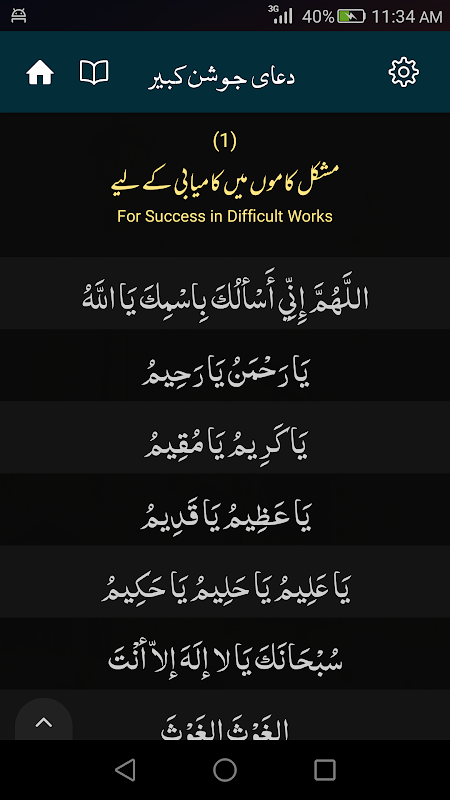 3G 40% 11:34 AM
دعای جوشن کبیر
(1)
مشکل کاموں میں کامیابی کے لیے
For Success in Difficult Works
اللَّهُمَّ إِنِّي أَسْأَلُكَ بِاسْمِكَ يَا اللَّهُ
يَا رَحْمَنُ يَا رَحِيمُ
يَا كَرِيمُ يَا مُقِيمُ
يَا عَظِيمُ يَا قَدِيمُ
يَا عَلِيمُ يَا حَلِيمُ يَا حَكِيمُ
سُبْحَانَكَ يَا لا إِلَهَ إِلاّ أَنْتَ
الغَوْثَ الغَوْثَ